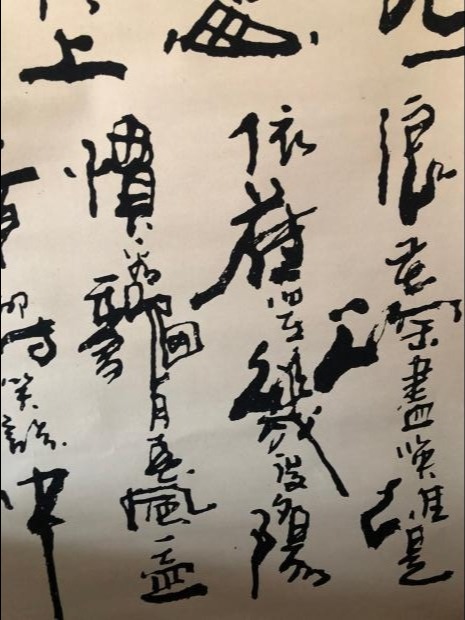 浪花淘盡英雄是
依舊在幾度夕陽
上慣看秋月春風一壺
付笑談中